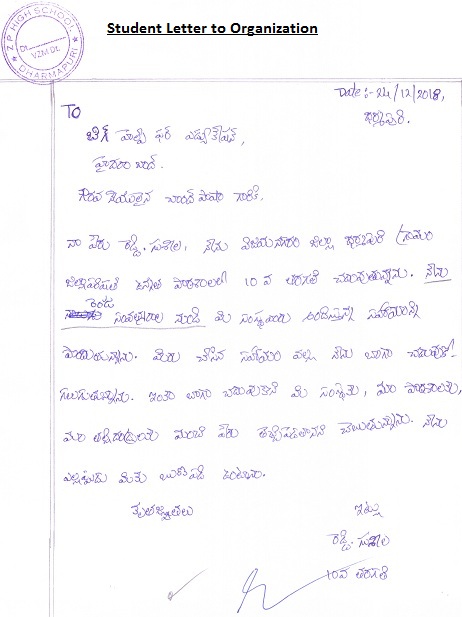 Student Letter to Organization
Z P HIGH SCHOOL
Dt.
VZM.Dt.
DHARMAPURI
Date:- 24/12/2018,
ధర్మపురి.
To
బిగ్ హెల్ప్ ఫర్ ఎడ్యుకేషన్,
హైదరాబాద్.
గౌరవనీయులైన చాంద్ పాషా గారికి,
నా పేరు రెడ్డి. సుశీల, నేను విజయనగరం జిల్లా ధర్మపురి గ్రామం
జిల్లాపరిషత్ ఉన్నత పాఠశాలలో 10వ తరగతి చదువుతున్నాను. నేను
రెండు
సంవత్సరాల నుండి మీ సంస్థవారు అందిస్తున్న సహాయాన్ని
పొందుతున్నాను. మీరు చేసిన సహాయం వల్ల నేను బాగా చదువుకో
గలుగుతున్నాను. ఇంకా బాగా చదువుకొని మీ సంస్థకు, మా పాఠశాలకు,
మా తల్లిదండ్రులకు మంచి పేరు తెచ్చిపెడతానని చెబుతున్నాను. నేను
ఎల్లప్పుడు మీకు ఋణపడి ఉంటాను.
కృతజ్ఞతలు
ఇట్లు
రెడ్డి. సుశీల
10వ తరగతి